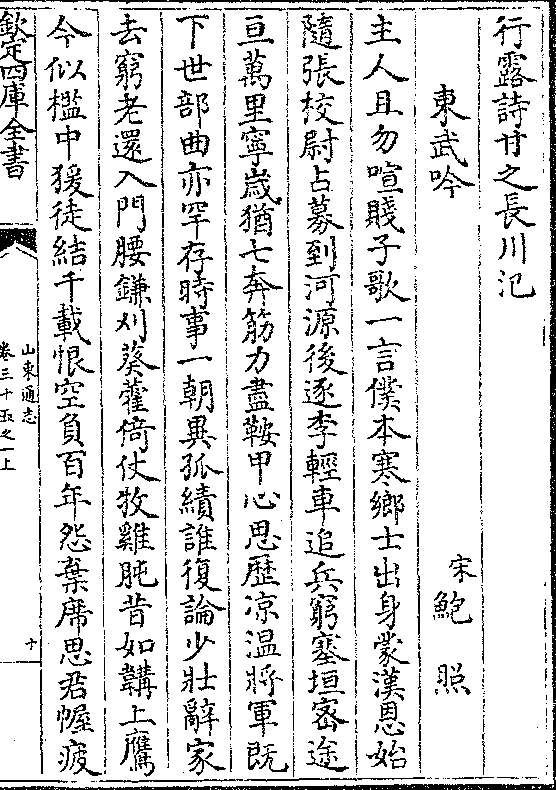 行露詩甘之長川汜
東武吟
宋鮑照
主人且勿喧賤子歌一言僕本寒鄉士出身蒙漢恩始
隨張校尉占募到河源後逐李輕車追兵窮塞垣宻途
亘萬里寧嵗猶七奔筋力盡鞍甲心思歴凉温將軍既
下世部曲亦罕存時事一朝異孤績誰復論少壯辭家
去窮老還入門腰鎌刈葵藿倚仗牧雞肫昔如韝上鷹
今似檻中猨徒結千載恨空負百年怨棄席思君幄疲
欽定四庫全書
山東通志
卷三十五之一上
十